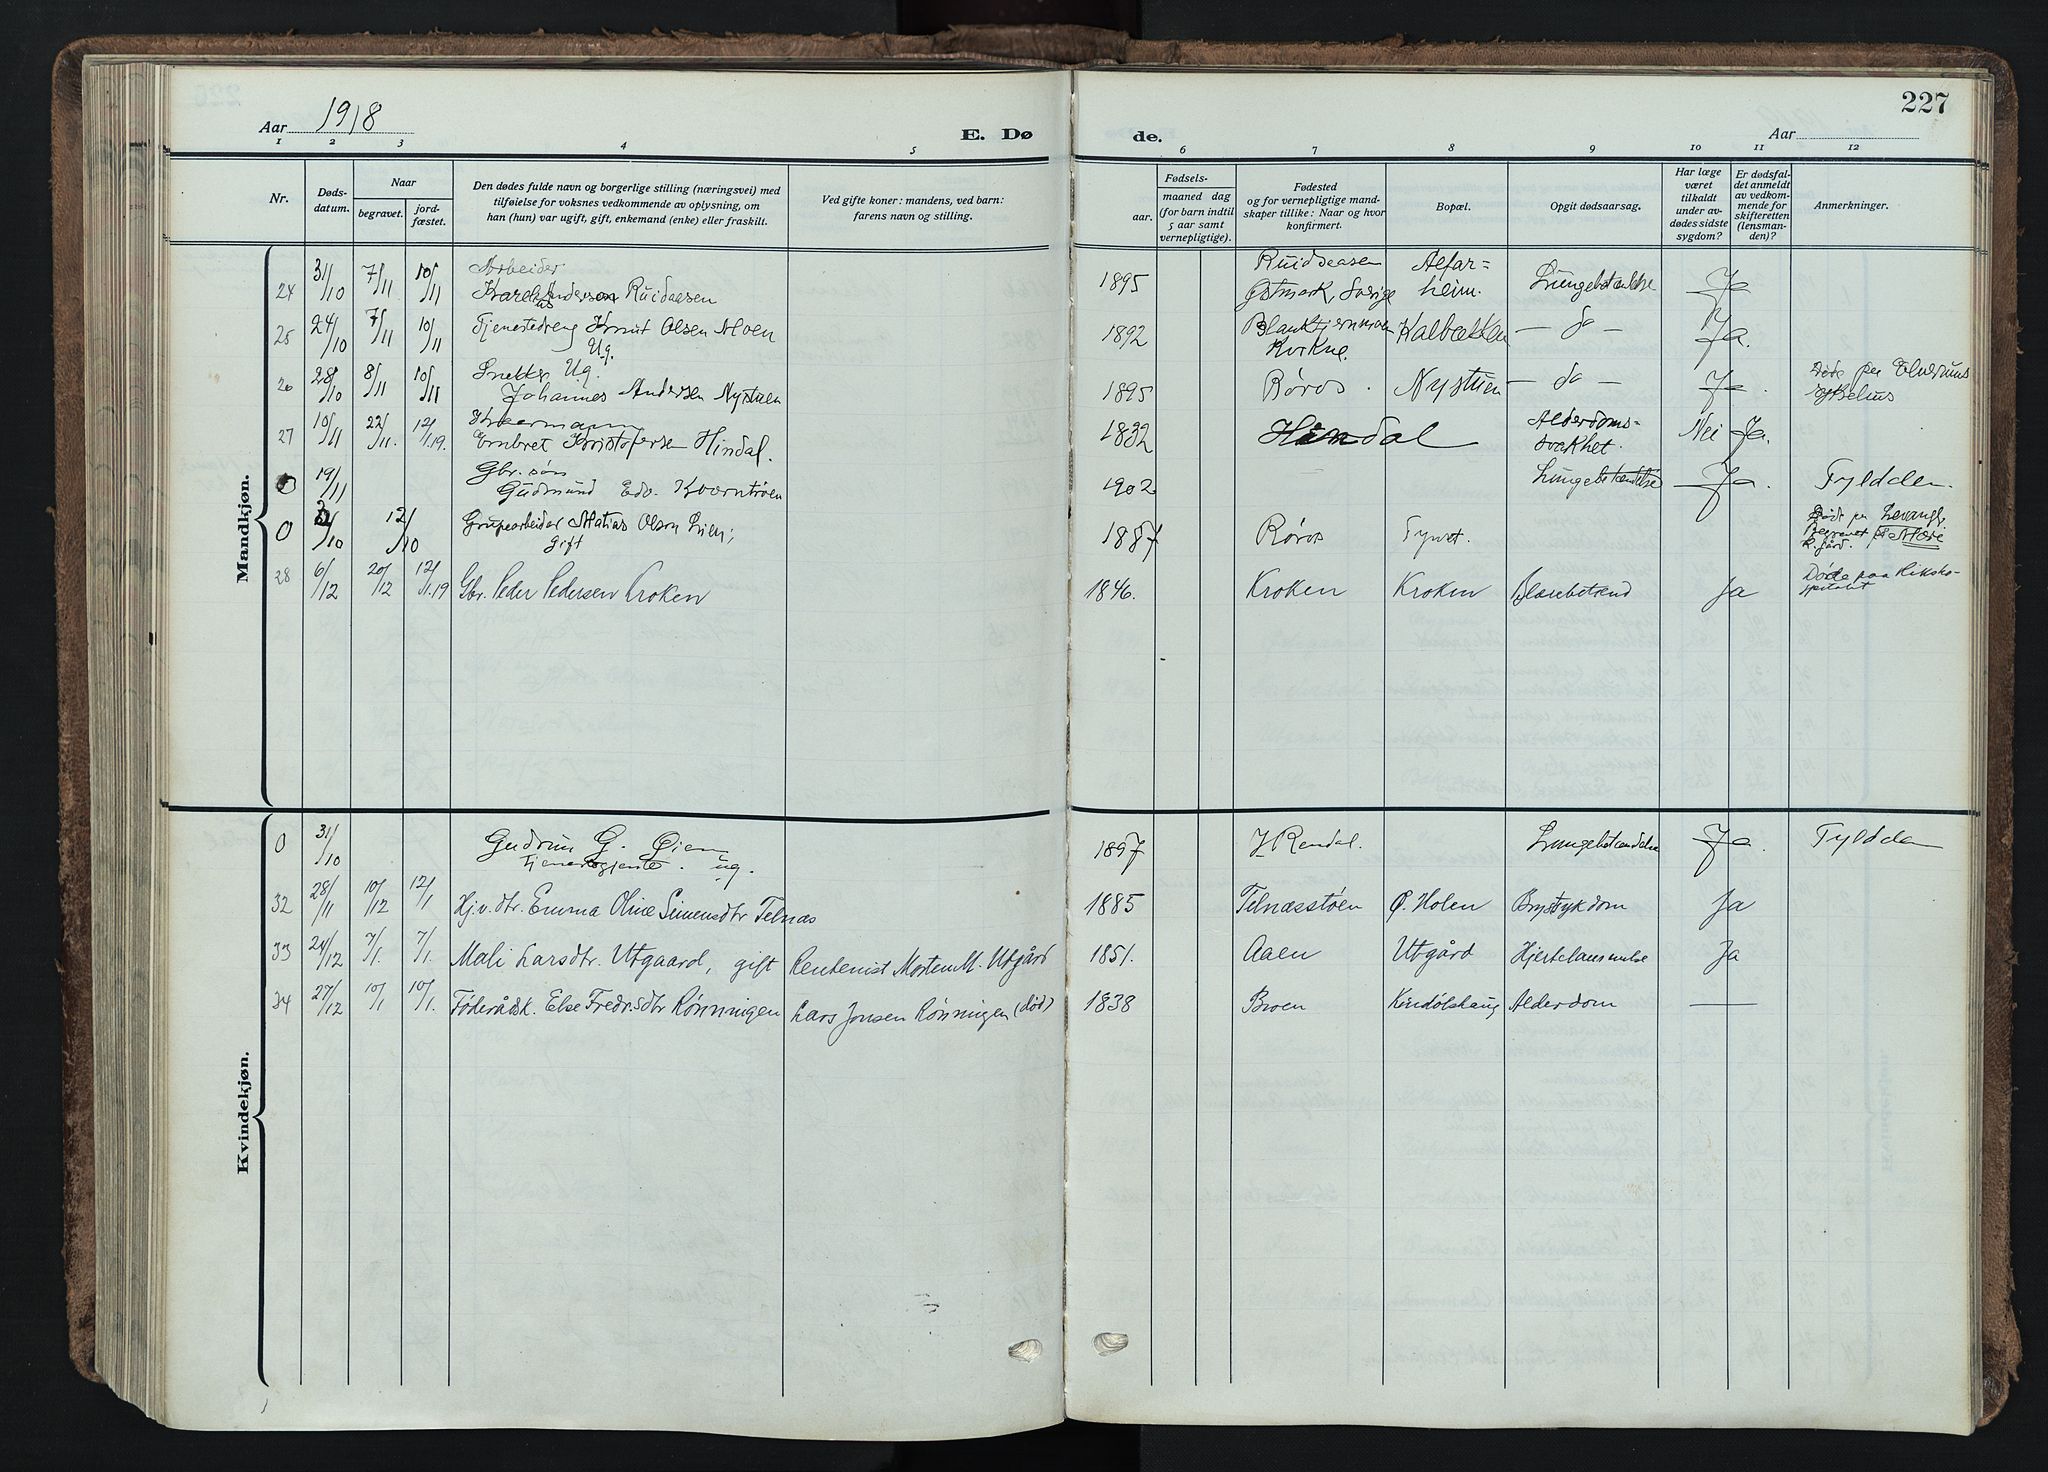 Aar 1918
E. Dø
de.
Aar
227
1 2 3 4 5 6 7 8 9 10 11 12
Nr.
Døds-
datum.
Naar
begravet.
jord-
fæstet.
Den dødes fulde navn og borgerlige stilling (næringsvei) med
tilføielse for voksnes vedkommende av oplysning, om
han (hun) var ugift, gift, enkemand (enke) eller fraskilt.
Ved gifte koner: mandens, ved barn:
farens navn og stilling.
Fødsels-
aar.
maaned dag
(for barn indtil
5 aar samt
vernepligtige).
Fødested
og for vernepligtige mand-
skaper tillike: Naar og hvor
konfirmert.
Bopæl.
Opgit dødsaarsag.
Har læge
været
tilkaldt
under av-
dødes sidste
sygdom?
Er dødsfal-
det anmeldt
av vedkom-
mende for
skifteretten
(lensman-
den)?
Anmerkninger.
Mandkjøn.
24 31/10 7/11 10/11 Arbeider
Ruidaasen 1895 Ruidaasen
Østmark, Sverige Lungebetændelse Ja
25 24/10 7/11 10/11 Tjenestedreng Knut Olsen Moen
Ug. 1892
Kvikne. — do — Ja.
26 28/10 8/11 10/11 Snekker Ug.
Johannes Andersen Nystuen 1895 Røros. Nystuen — do — Ja.
27 10/11 22/11. 12/1.19. Kaarmann
Embret Kristofersen Hindal. 1832 Hindal Alderdoms-
svakhet. Nei Ja.
0 19/11 Gbr. søn
Gudmund Edv. Kværntrøen 1902 Lungebetændelse Ja. Tylddalen.
0 12/10 Grupearbeider Matias Olsen Lien;
Gift 1887 Røros
28 6/12 20/12 12/1.19 Gbr. Peder Pedersen Kroken 1846. Kroken Kroken Blærebetænd Ja Døde paa Riksho-
spitalet
Kvindekjøn.
0 31/10 Gudrun G. Øien
Tjenestegjente. ug. 1897 Y. Rendal. Lungebetændelse Ja. Tylddalen
32 28/11 10/12 12/1 Hj.v. dtr. Emma Oline Simensdtr Telnæs 1885 Telnæsstøen Ø. Holen Brystsykdom Ja
33 24/12 7/1. 7/1. Mali Larsdtr. Utgaard, gift Rentenist Morten M. Utgård 1851. Aaen Utgård Hjertelammelse Ja
34 27/12 10/1 10/1. Føderådsk. Else Fredr.sdtr Rønningen Lars Jonsen Rønningen (død) 1838 Broen Kindølshaug Alderdom —